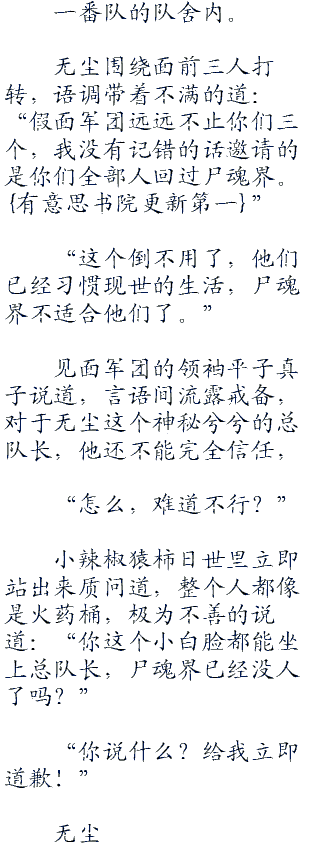 一番队的队舍内。
无尘围绕面前三人打
转，语调带着不满的道：
“假面军团远远不止你们三
个，我没有记错的话邀请的
是你们全部人回过尸魂界。
{有意思书院更新第一}”
“这个倒不用了，他们
已经习惯现世的生活，尸魂
界不适合他们了。”
见面军团的领袖平子真
子说道，言语间流露戒备，
对于无尘这个神秘兮兮的总
队长，他还不能完全信任，
“怎么，难道不行？”
小辣椒猿柿日世里立即
站出来质问道，整个人都像
是火药桶，极为不善的说
道：“你这个小白脸都能坐
上总队长，尸魂界已经没人
了吗？”
“你说什么？给我立即
道歉！”
无尘